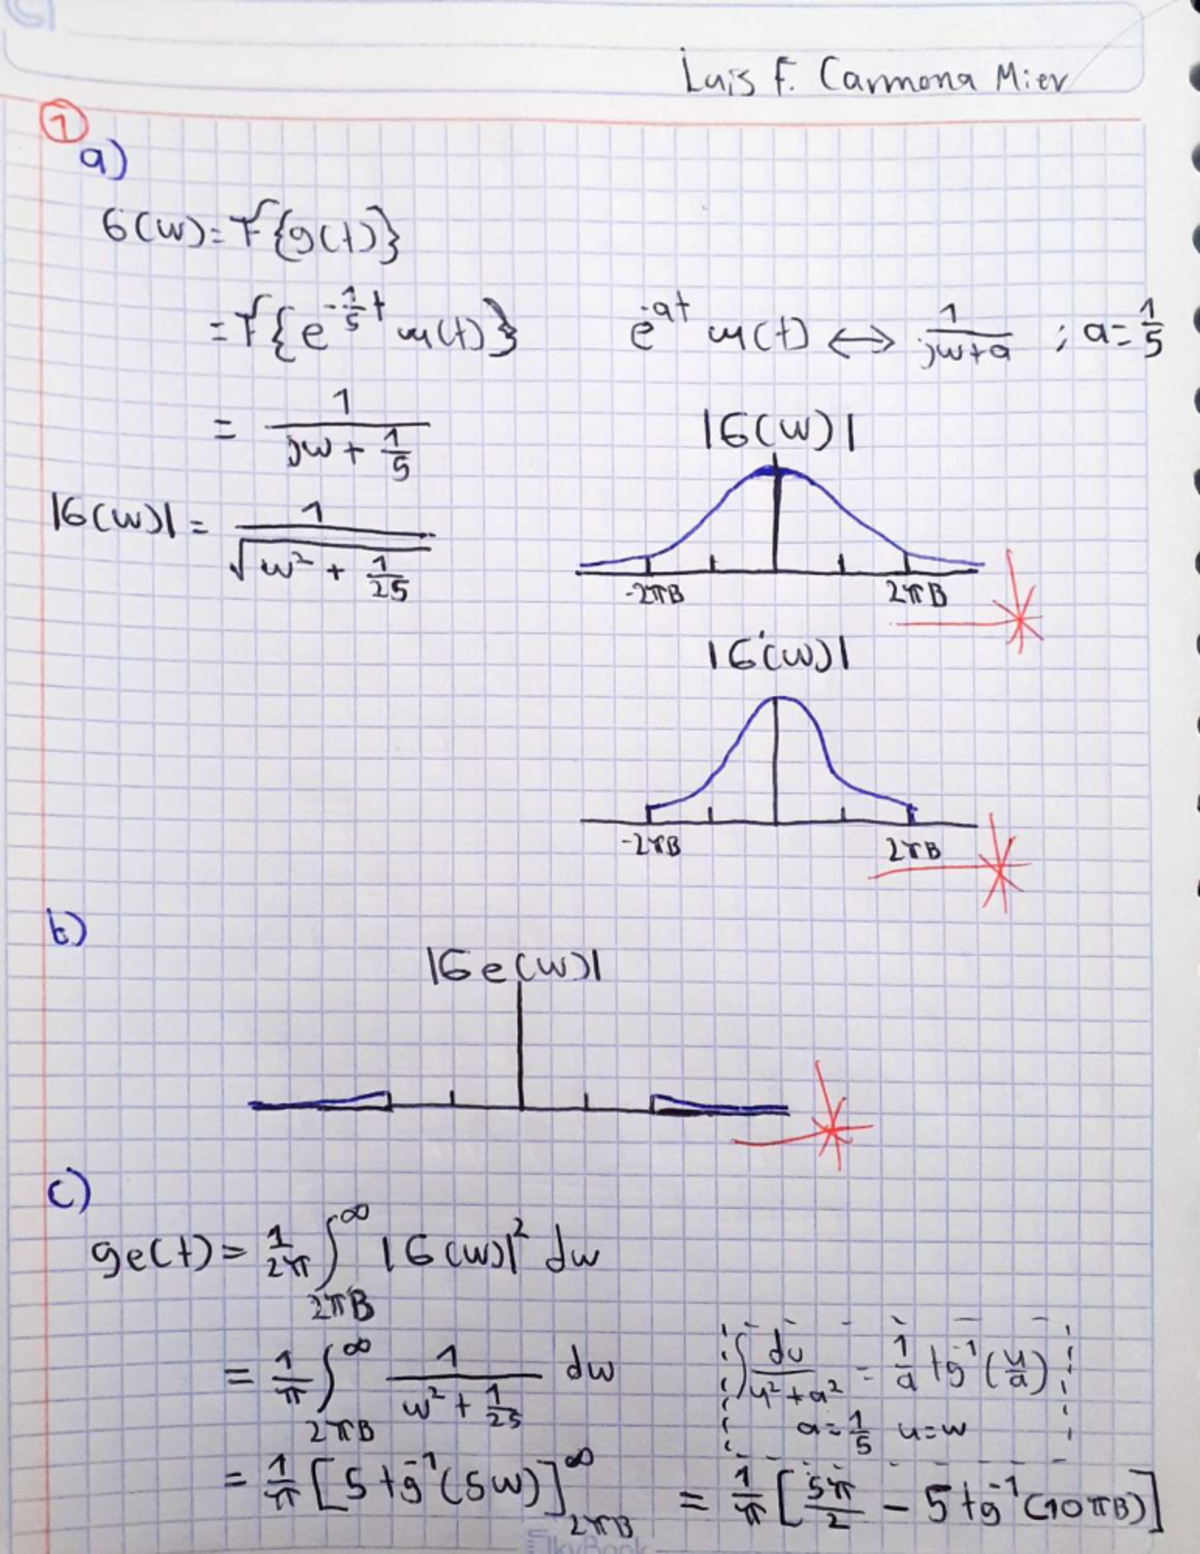 Luis F. Carmona Mier
1
a)
G(w)=F{g(t)}
=F{e^{-1/5 t} u(t)} e^{-at} u(t) ↔ 1/(jw+a) ; a=1/5
= 1/(jw + 1/5)
|G(w)|
|G(w)| = 1/√(w² + 1/25)
-2πB 2πB
|G'(w)|
-2πB 2πB
b)
|Ge(w)|
c)
ge(t) = 1/2π ∫_{2πB}^{∞} |G(w)|² dw
= 1/π ∫_{2πB}^{∞} 1/(w² + 1/25) dw
∫ du/(u²+a²) = 1/a tg⁻¹(u/a)
a=1/5 u=w
= 1/π [5 tg⁻¹(5w)]_{2πB}^{∞} = 1/π [5π/2 - 5 tg⁻¹(10πB)]